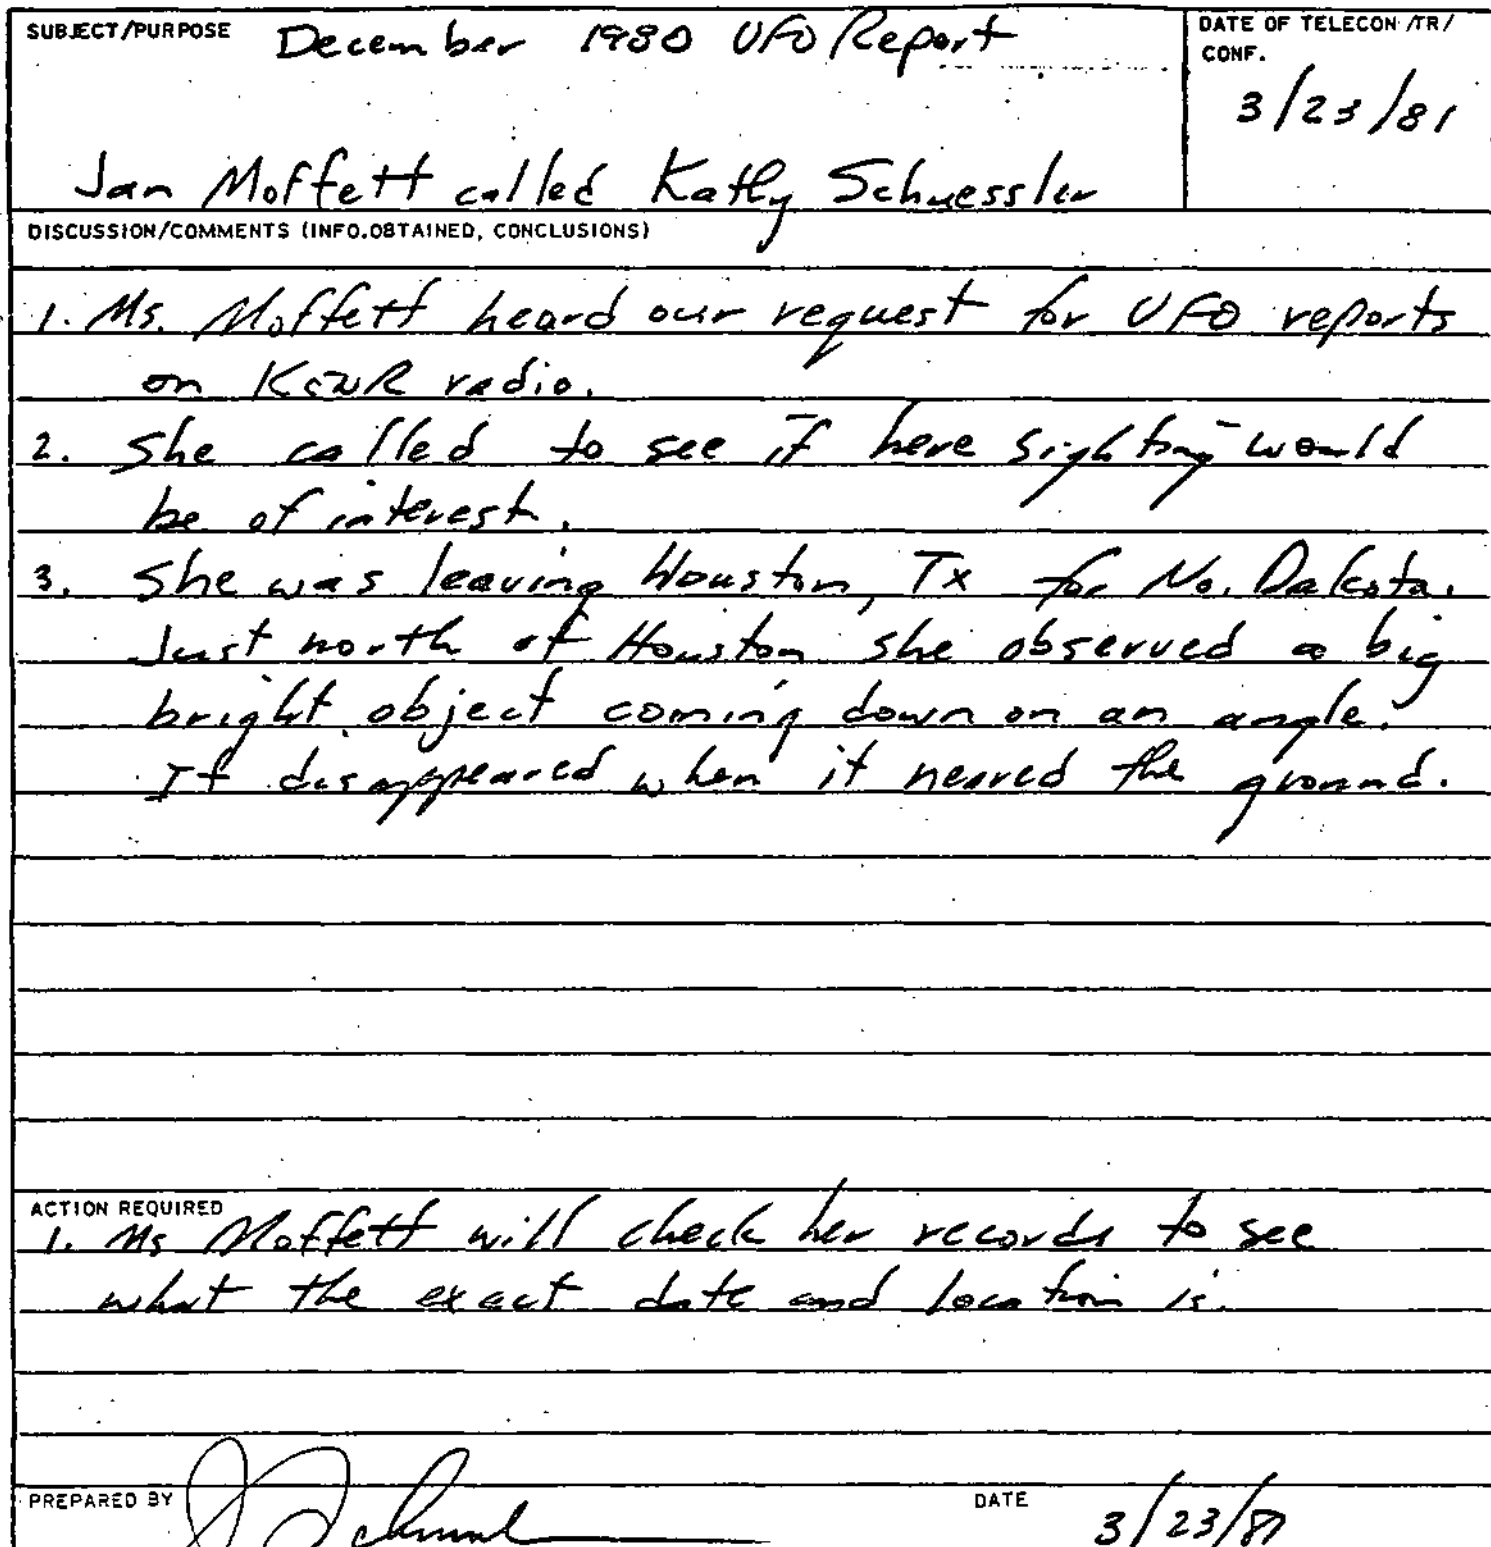 SUBJECT/PURPOSE December 1980 UFO Report
DATE OF TELECON/TR/
CONF.
3/23/81
Jan Moffett called Kathy Schuessler
DISCUSSION/COMMENTS (INFO.OBTAINED, CONCLUSIONS)
1. Ms. Moffett heard our request for UFO reports
on radio.
2. She called to see if here sighting would
be of interest.
3. She was leaving Houston, Tx for No. Dakota.
Just north of Houston she observed a big
bright object coming down on an angle.
It disappeared when it neared the ground.
ACTION REQUIRED
1. Ms Moffett will check her records to see
what the exact date and location is.
PREPARED BY
DATE 3/23/81